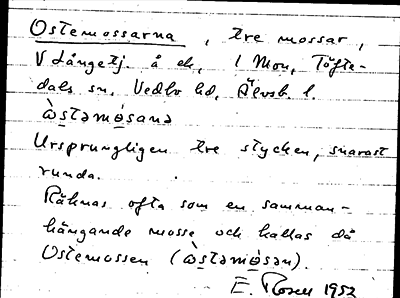 Ostemossarna, tre mossar,
V Långetj. å ek, 1 Mon, Töfte-
dals sn, Vedbo hd, Älvsb. l.
òstəmòsanə
Ursprungligen tre stycken, snarast
runda.
Räknas ofta som en samman-
hängande mosse och kallas då
Ostemossen (òstəmòsən).
E. Rosell 1952